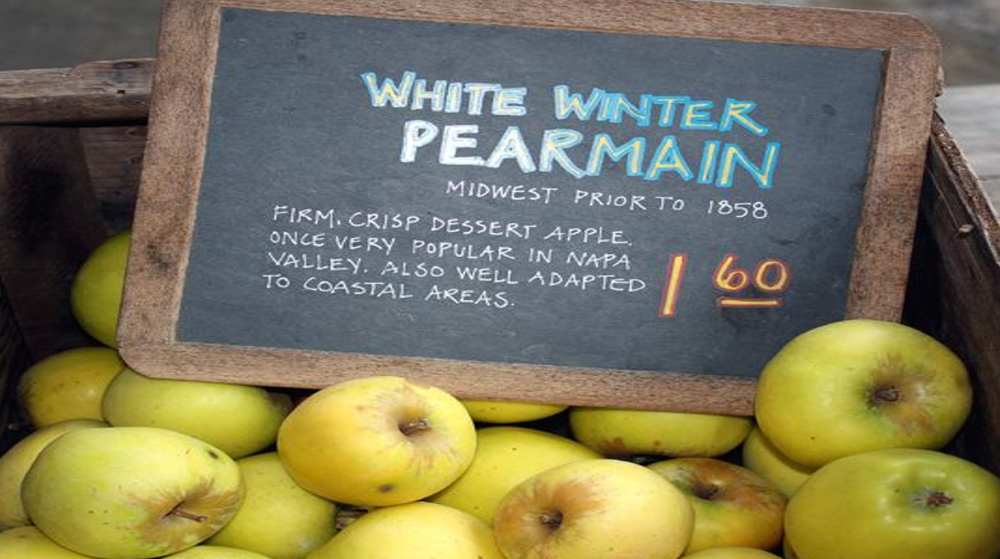 WHITE WINTER
PEARMAIN
MIDWEST PRIOR TO 1858
FIRM. CRISP DESSERT APPLE.
ONCE VERY POPULAR IN NAPA
VALLEY. ALSO WELL ADAPTED
TO COASTAL AREAS.
1 60